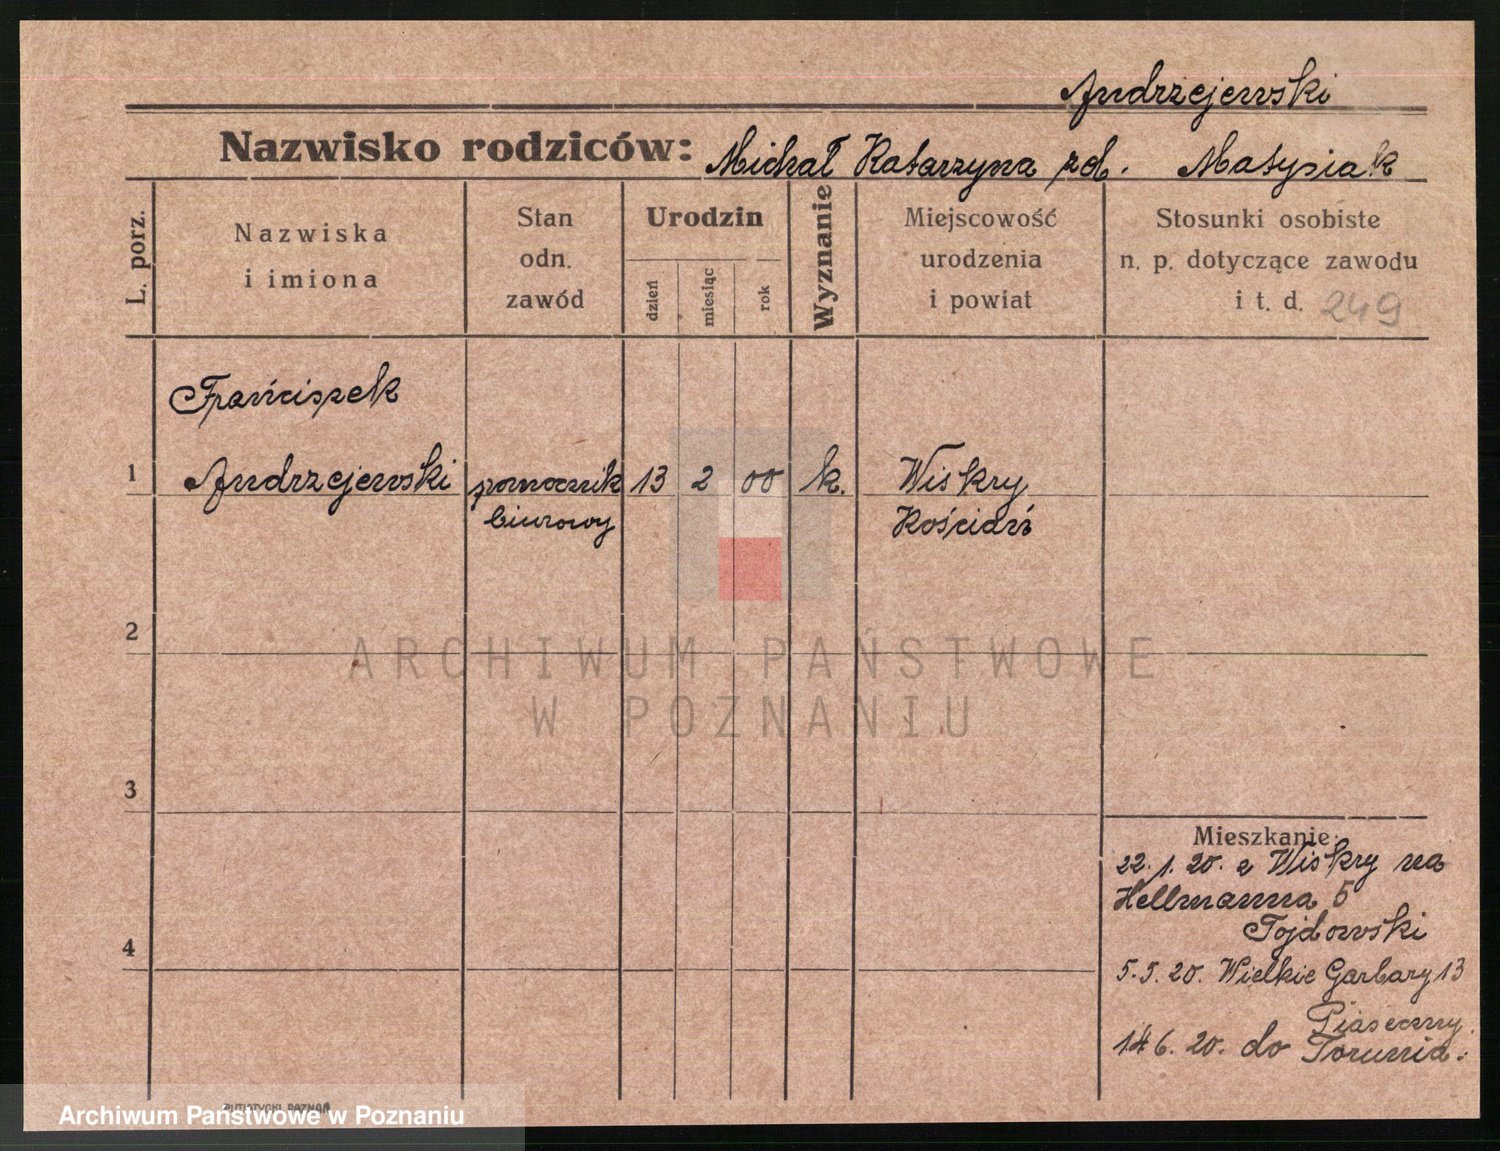 Andrzejewski
Nazwisko rodziców: Michał Katarzyna zd. Matysiak
L. porz.
Nazwiska
i imiona
Stan
odn.
zawód
Urodzin
dzień
miesiąc
rok
Wyznanie
Miejscowość
urodzenia
i powiat
Stosunki osobiste
n. p. dotyczące zawodu
i t. d. 249
Franciszek
1 Andrzejewski pomocnik 13 2 00 k. Wiskry
biurowy Kościań
2
ARCHIWUM PAŃSTWOWE
W POZNANIU
3
Mieszkanie:
22. 1. 20. z Wiskry na
Hellmanna 5
Tojdowski
4
5. 5. 20. Wielkie Garbary 13
Piaseczny.
14 6. 20. do Torunia.
PUTIATYCKI POZNAŃ
Archiwum Państwowe w Poznaniu